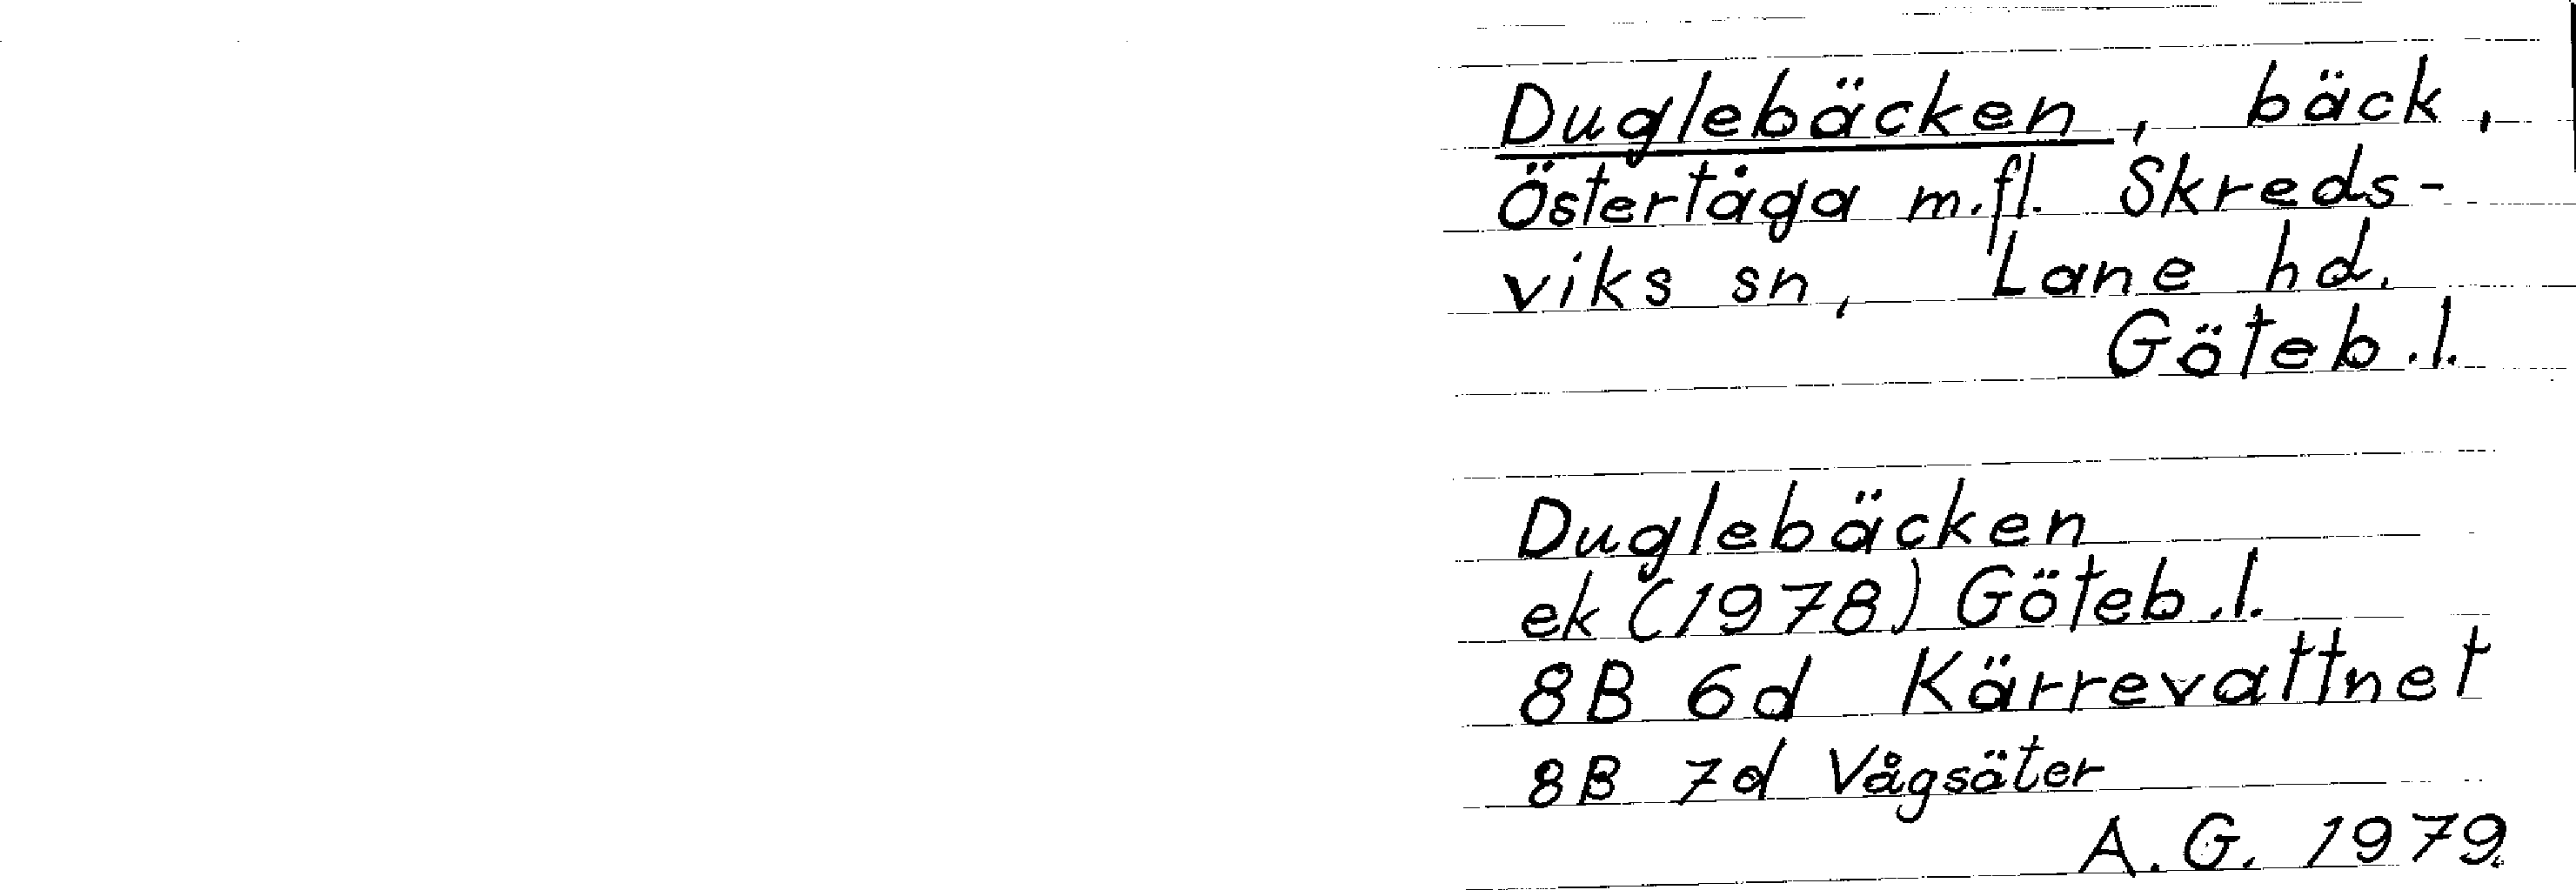 Duglebäcken, bäck,
Östertåga m.fl. Skreds-
viks sn, Lane hd.
Göteb.l.
Duglebäcken
ek (1978) Göteb.l.
8B 6d Kärrevattnet
8B 7d Vågsäter
A.G. 1979.